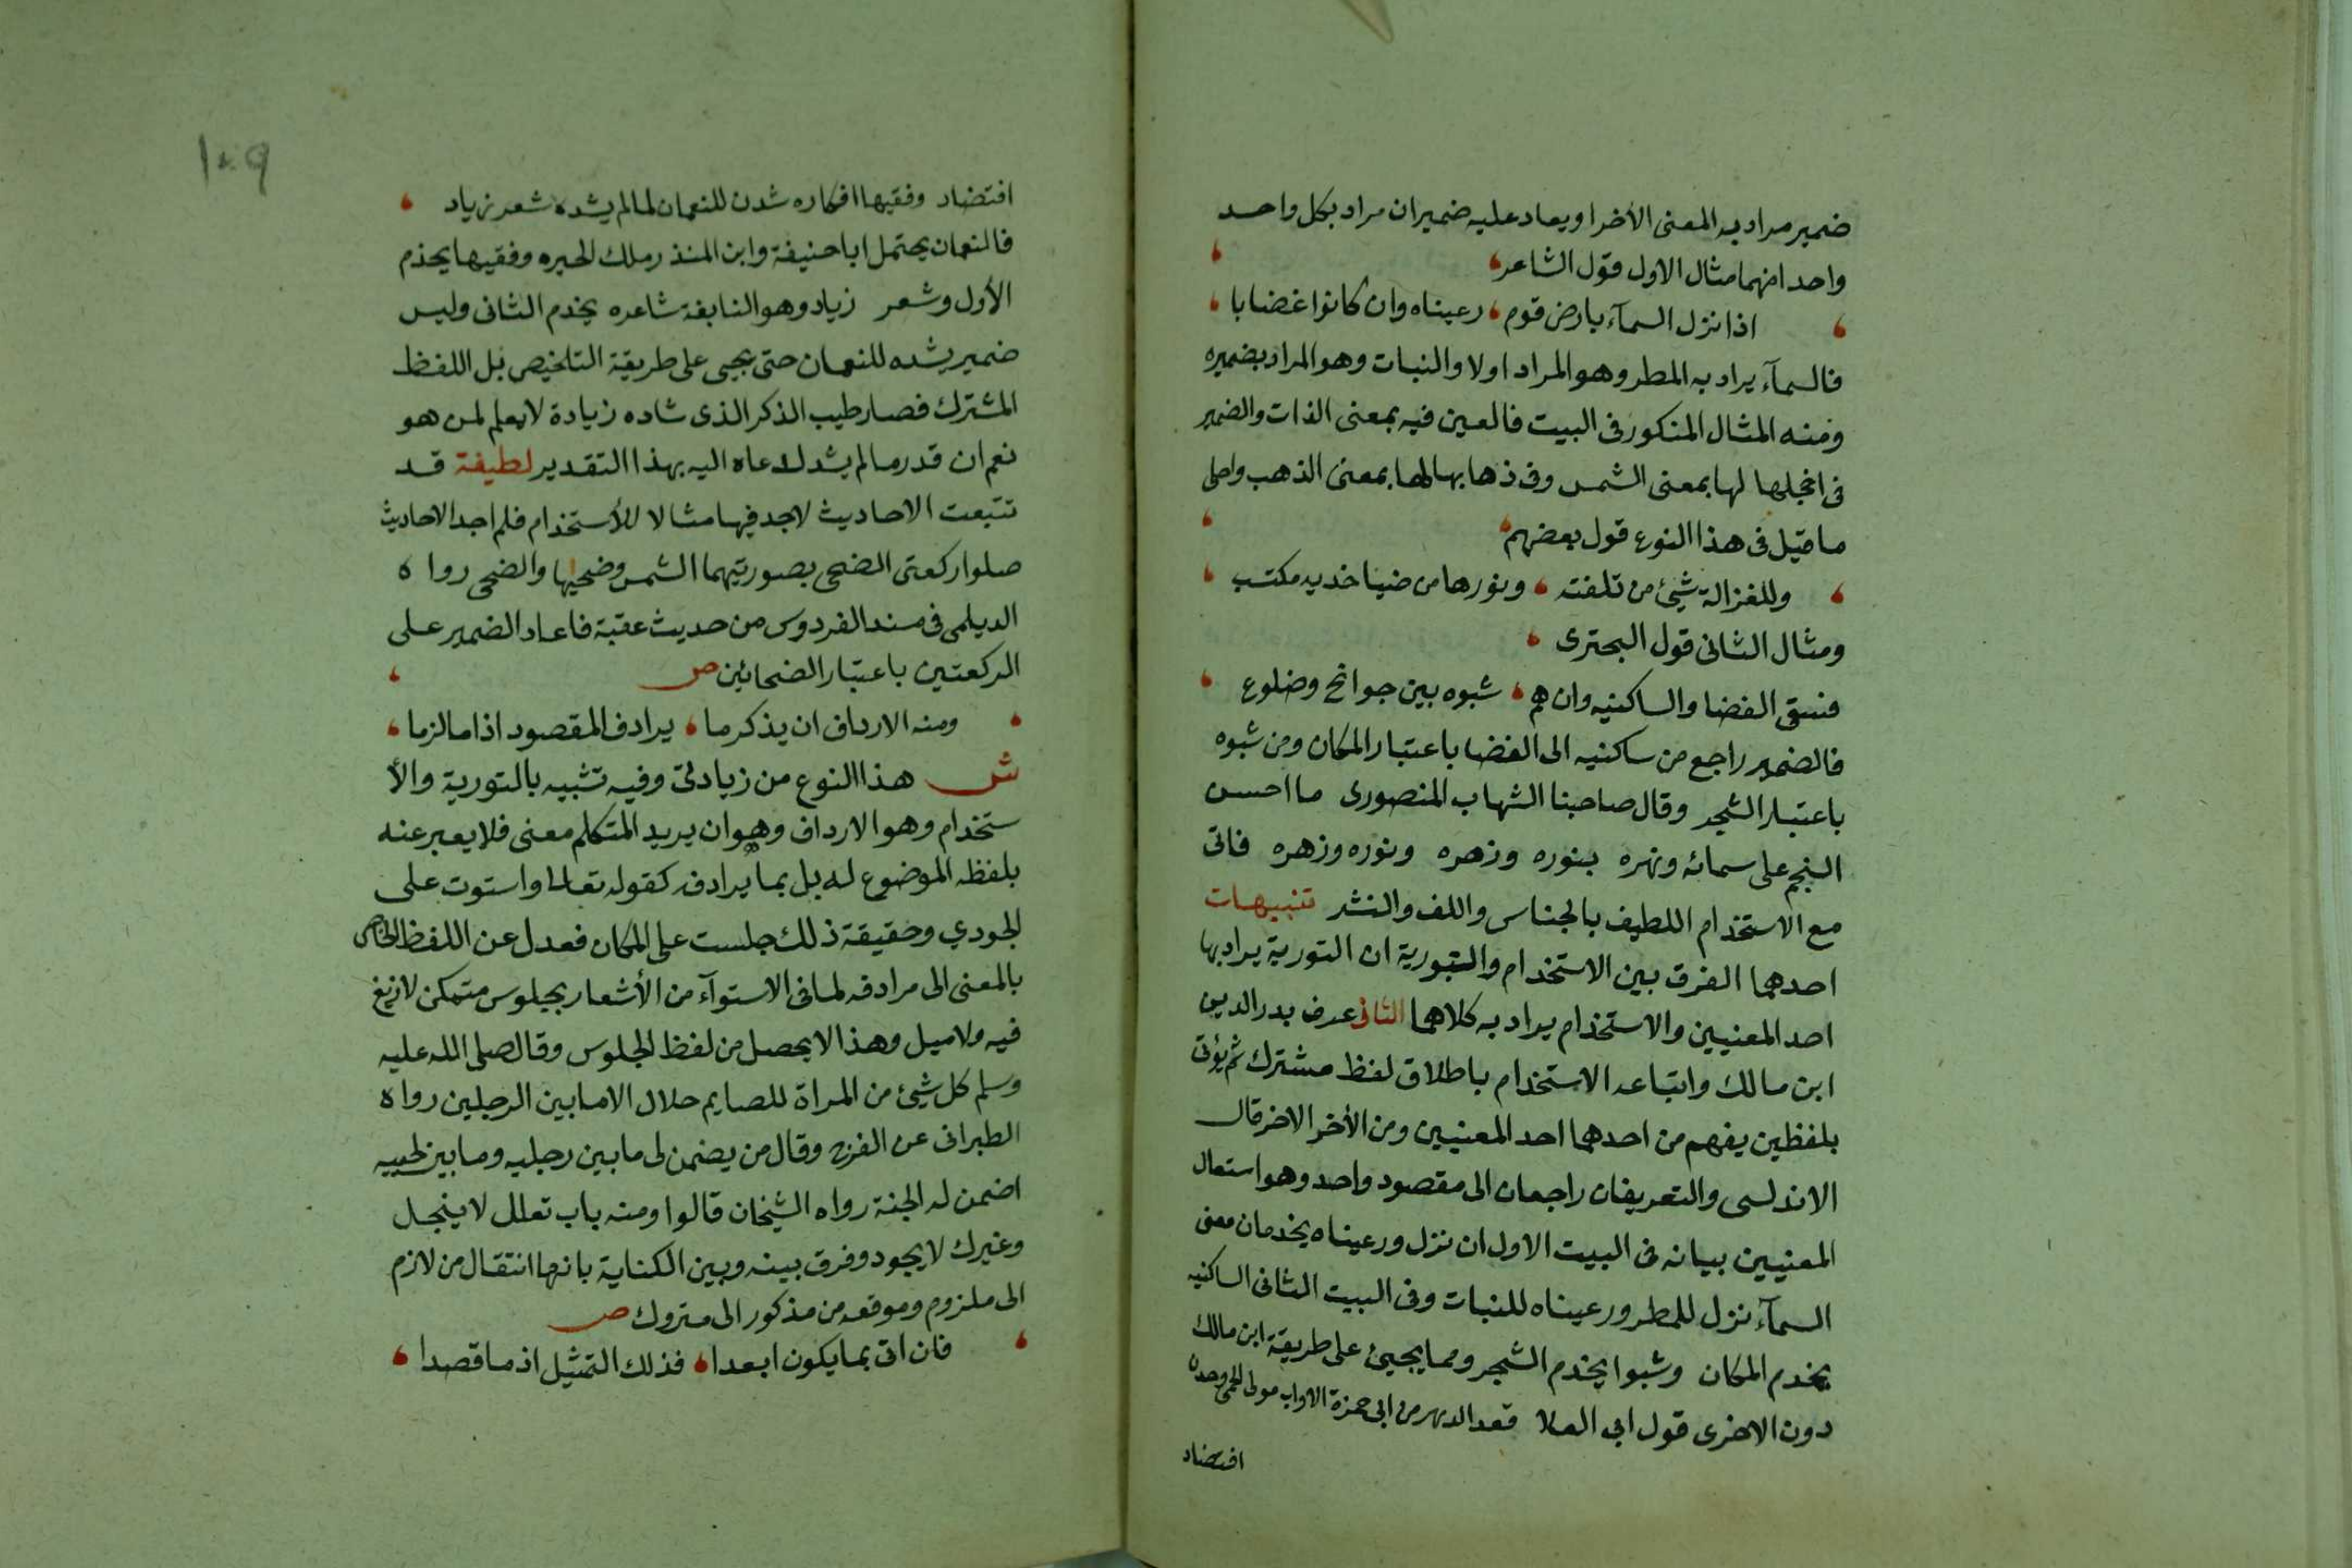 ضمير مراد به المعنى الأخر او يعاد عليه ضميران مراد بكل واحد
واحدا منهما مثال الاول قول الشاعر
اذا نزل السمآء بارض قوم رعيناه وان كانوا غضابا
فالسمآء يراد به المطر وهو المراد اولا والنبات وهو المراد بضميره
ومنه المثال المذكور فى البيت فالعين فيه بمعنى الذات والضمير
فى اخجلها لها بمعنى الشمس وفى ذهابها لها بمعنى الذهب واحلى
ما قيل فى هذا النوع قول بعضهم
وللغزالة شيئ من تلفته ونورها من ضيا خديه مكتسب
ومثال الثانى قول البحترى
فسقى الغضا والساكنيه وان هم شبوه بين جوانح وضلوع
فالضمير راجع من ساكنيه الى الغضا باعتبار المكان ومن شبوه
باعتبار الشجر وقال صاحبنا الشهاب المنصورى ما احسن
النجم على سمائه ونهره بنوره وزهره ونوره وزهره فاتى
مع الاستخدام اللطيف بالجناس واللف والنشر تنبيهات
احدهما الفرق بين الاستخدام والتورية ان التورية يراد بها
احد المعنيين والاستخدام يراد به كلاهما الثانى عرف بدر الدين
ابن مالك واتباعه الاستخدام باطلاق لفظ مشترك ثم يؤتى
بلفظين يفهم من احدهما احد المعنيين ومن الأخر الاخر قال
الاندلسى والتعريفان راجعان الى مقصود واحد وهو استعمال
المعنيين بيانه فى البيت الاول ان نزل ورعيناه يخدمان معنى
السمآء نزل للمطر ورعيناه للنبات وفى البيت الثانى الساكنيه
يخدم المكان وشبوا يخدم الشجر ومما يجيئ على طريقة ابن مالك
دون الاخرى قول ابى العلا قصد الدهر من ابى حمزة الاواب مولى
افتضاد
١٠٩
افتضاد وفقيها افكاره شدن للنعمان لما لم يشده شعر زياد
فالنعمان يحتمل ابا حنيفة وابن المنذر ملك الحيره وفقيها يخدم
الأول وشعر زياد وهو النابغة شاعره يخدم الثانى وليس
ضمير يشده للنعمان حتى يجيى على طريقة التلخيص بل اللفظ
المشترك فصار طيب الذكر الذى شاده زيادة لا يعلم لمن هو
نعم ان قدر ما لم يشد لدعاه اليه بهذا التقدير لطيفة قد
تتبعت الاحاديث لاجد فيها مثالا للأستخدام فلم اجد الاحاديث
صلوا ركعتى الضحى بصورتيهما الشمس وضحيها والضحى رواه
الديلمى فى مسند الفردوس من حديث عقبة فاعاد الضمير على
الركعتين باعتبار الضحائين ص
ومنه الارداف ان يذكر ما يرادف المقصود اذا ما لزما
ش هذا النوع من زيادتى وفيه تشبيه بالتورية والأ
ستخدام وهو الارداف وهو ان يريد المتكلم معنى فلا يعبر عنه
بلفظه الموضوع له بل بما يرادف كقوله تعالى واستوت على
الجودي وحقيقة ذلك جلست على المكان فعدل عن اللفظ الخاص
بالمعنى الى مرادفه لما فى الاستوآء من الأشعار بجيلوس متمكن لا زيغ
فيه ولا ميل وهذا لا يحصل من لفظ الجلوس وقال صلى الله عليه
وسلم كل شيئ من المراة للصايم حلال الا ما بين الرجلين رواه
الطبرانى عن الفرج وقال من يضمن لى ما بين رجليه وما بين لحييه
اضمن له الجنة رواه الشيخان قالوا ومنه باب تعلل لا ينجل
وغيرك لا يجود وفرق بينه وبين الكناية بانها انتقال من لازم
الى ملزوم وموقعه من مذكور الى متروك ص
فان اتى بما يكون ابعدا فذلك التمثيل اذ ما قصدا